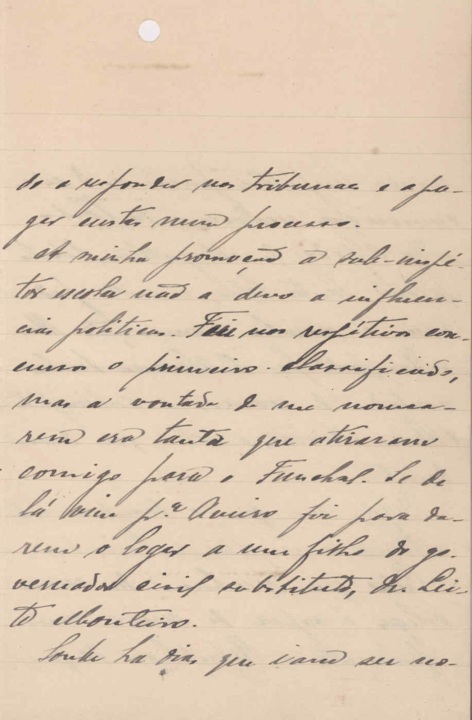 do a responder nos tribunaes e a pa-
gar custas num processo.
A minha promoção a sub-inspé-
tor escolar não a devo a influen-
cias politicas. Fui nos respétivos con-
cursos o primeiro classificado,
mas a vontade de me nomea-
rem era tanta que atiraram
comigo para o Funchal. Se de
lá vim p.ª Aveiro foi para da-
rem o logar a um filho do go-
vernador civil substituto, Dr. Lei-
te Monteiro.
Soube ha dias que iam ser no-